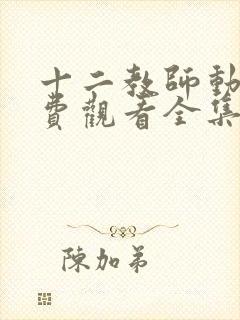 十二教師動
費觀看全集
陳加弟